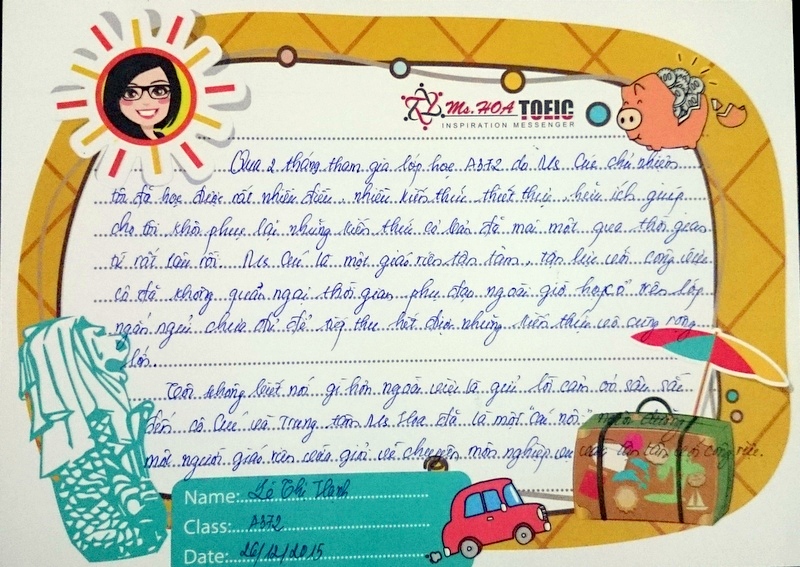 Ms. HOA TOEIC
INSPIRATION MESSENGER
Qua 2 tháng tham gia lớp học A372 do Ms Cúc chủ nhiệm
tôi đã học được rất nhiều điều, nhiều kiến thức thiết thực, hữu ích giúp
cho tôi khôi phục lại những kiến thức cơ bản đã mai một qua thời gian
từ rất lâu rồi. Ms Cúc là một giáo viên tận tâm, tận lực với công việc
cô đã không quản ngại thời gian phụ đạo ngoài giờ học ở trên lớp
ngắn ngủi chưa đủ để tiếp thu hết được những kiến thức vô cùng rộng
lớn.
Tôi không biết nói gì hơn ngoài việc là gửi lời cảm ơn sâu sắc
đến cô Cúc và Trung tâm Ms Hoa đã là một "cái nôi" nuôi dưỡng
một người giáo viên vừa giỏi về chuyên môn nghiệp vụ vừa tận tâm với công việc.
Name: Lê Thị Thanh
Class: A372
Date: 26/12/2015